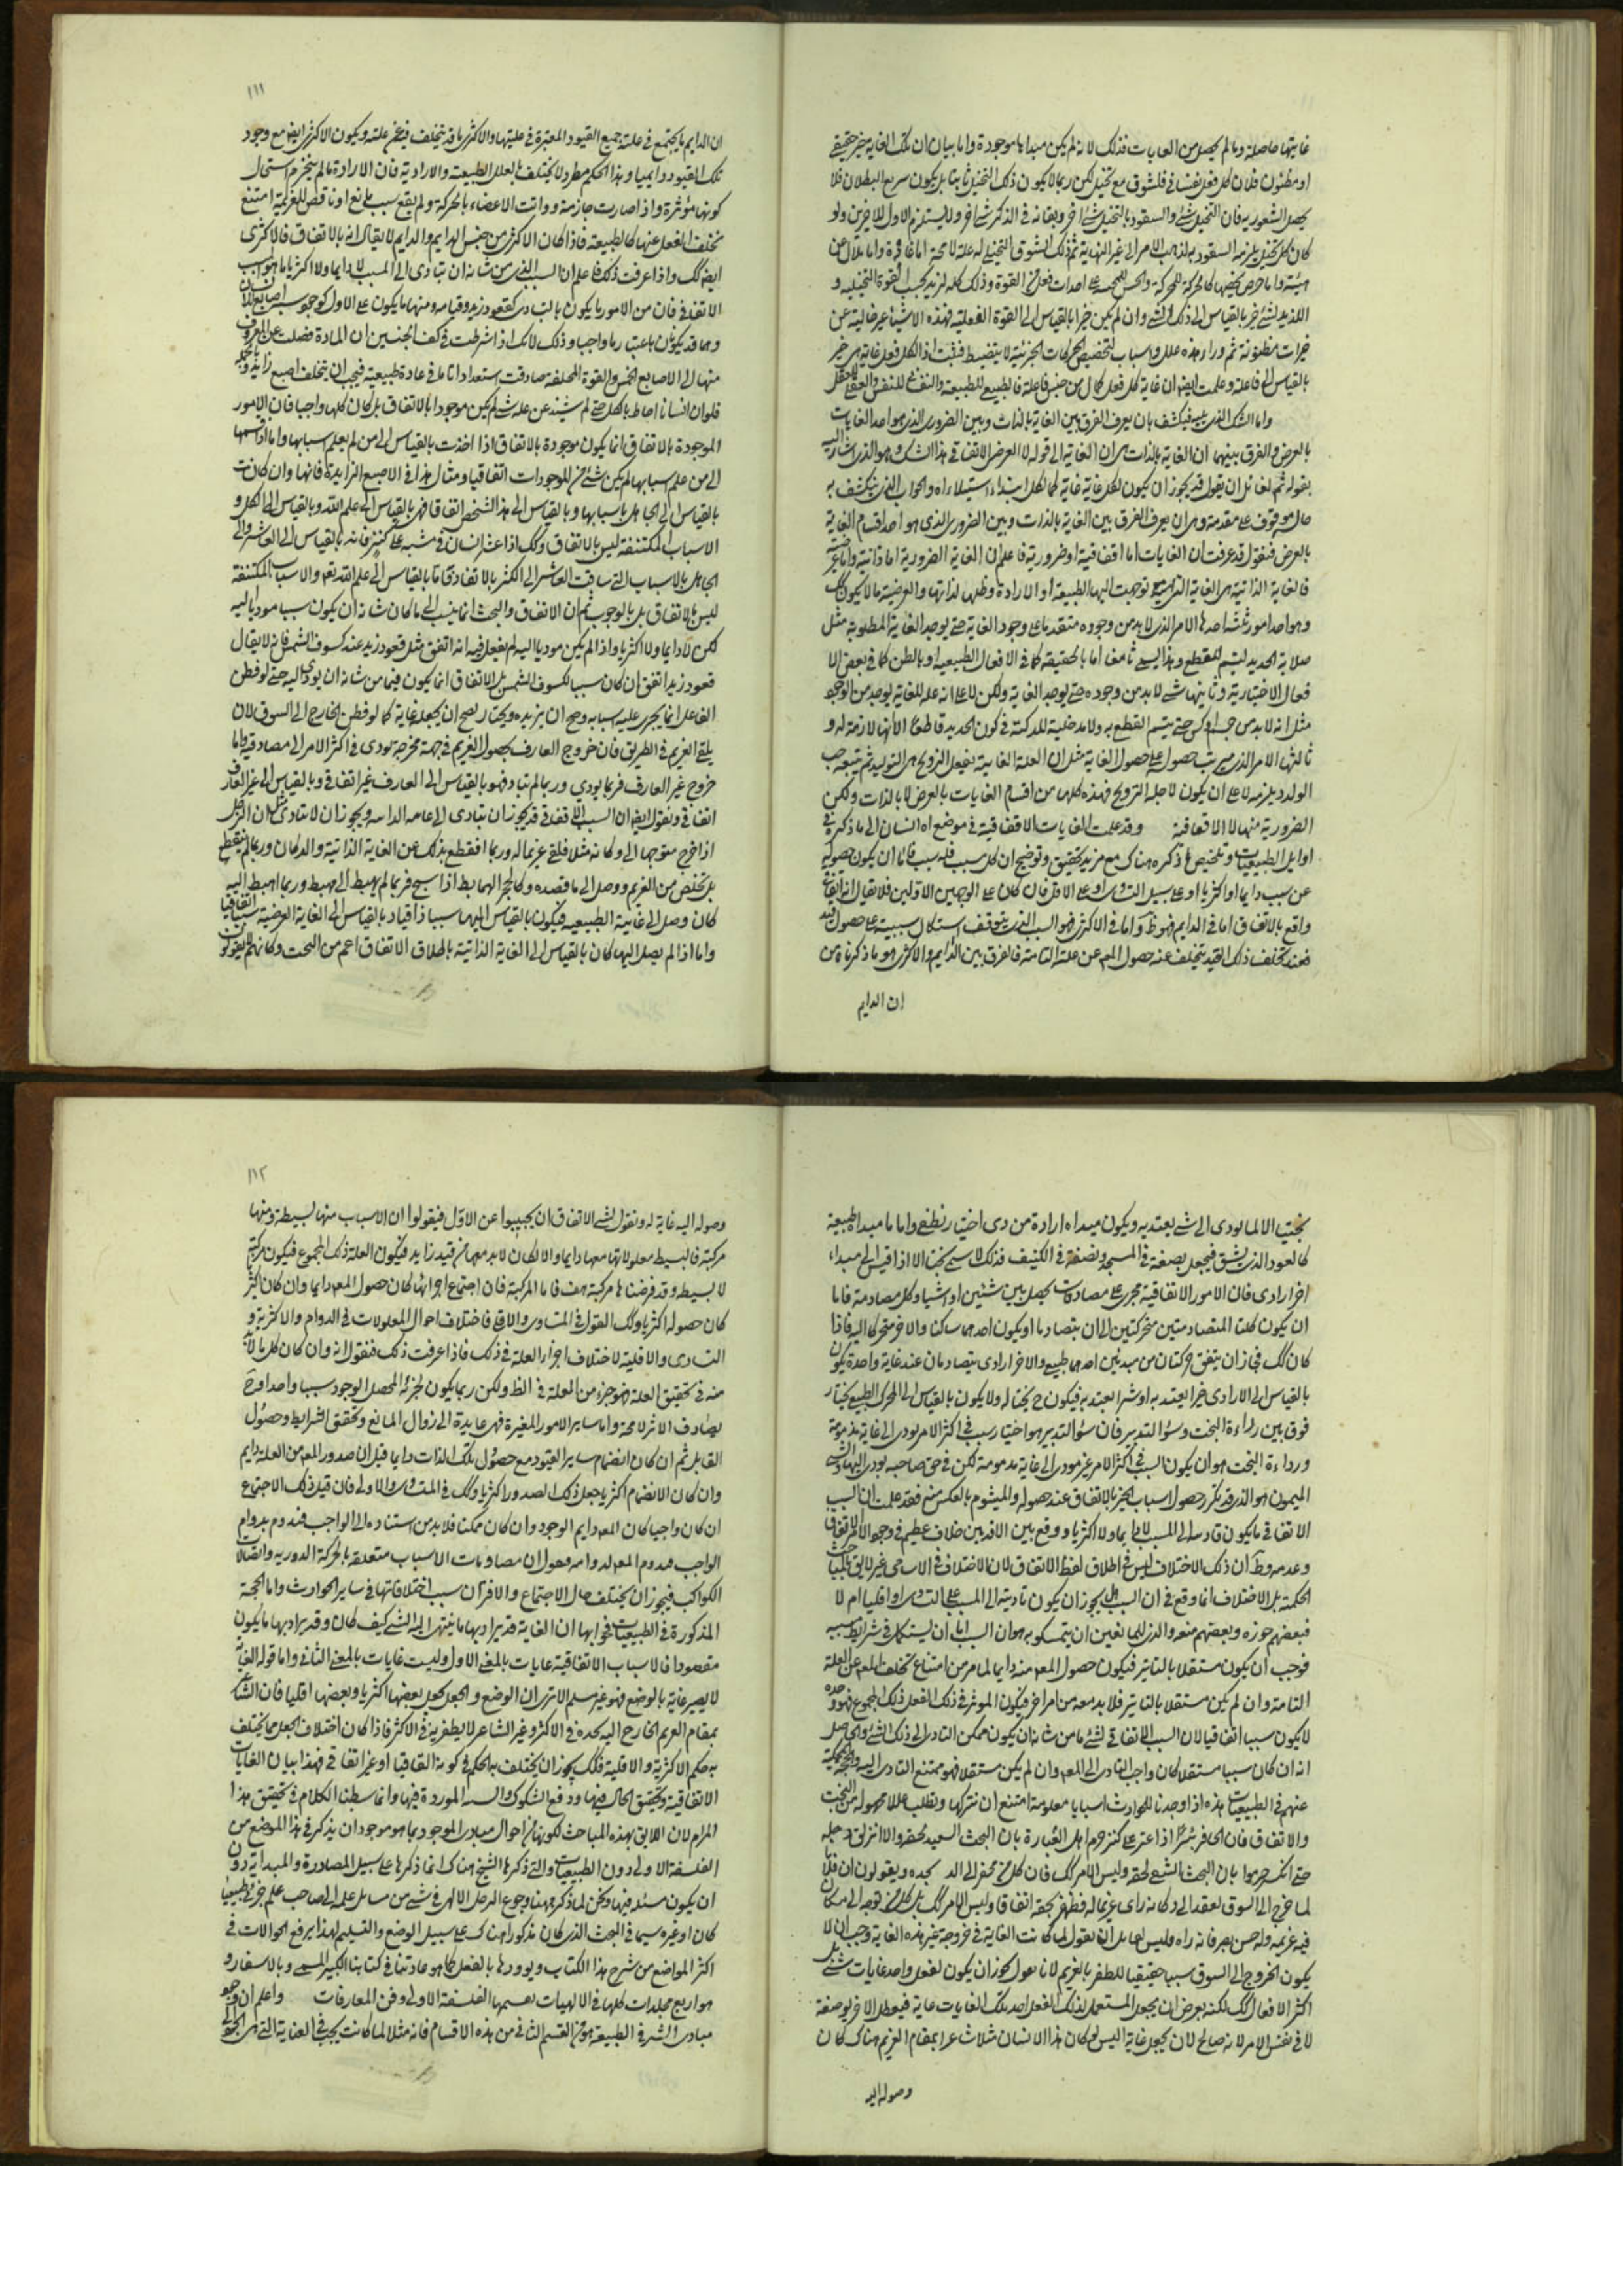 غايتها حاصلة وما لم يحصل من الغايات فذلك لانه لم يكن مبداها موجودة واما بيان ان تلك الغاية خير حقيقى
او مظنون فلان كل فعل نفسانى فلشوق مع تخيل لكن ربما لا يكون ذلك التخيل ثابتا بل يكون سريع البطلان فلا
يحصل الشعور به فان التخيل شئ والشعور بالتخيل شئ اخر وبقائه فى الذكر شئ اخر ولا يستلزم الاول للاخرين ولو
كان كل تخيل يلزمه الشعور به لذهب الامر الى غير النهاية ثم ذلك الشوق التخيلى له علة لا محة اما عادة واما ملال عن
هيئة واما حرص
اللذيذ لشئ خير بالقياس الى ذلك الشئ وان لم يكن خيرا بالقياس الى القوة العقلية فهذه الاشياء غير خالية عن
خيرات مظنونة ثم وراء هذه علل واسباب لتخصيص الحركات الجزئية لا ينضبط فثبت اذا لكل فعل غاية هى خير
بالقياس الى فاعله وعلمت ايضا ان غاية كل فعل كمال من جنس فاعله فالطبيعى للطبيعة والنفسى للنفس والعقلى للعقل
واما الشك الذى يليه فيكشف بان يعرف الفرق بين الغاية بالذات وبين الضرورى الذى هو احد الغايات
بالعرض والفرق بينهما ان الغاية بالذات هى ان الغاية الى قوله لا العرض الاتفاقى هذا الشك هو الذى اشار اليه
بقوله ثم لقائل ان يقول قد يجوز ان يكون لكل غاية غاية كما لكل ابتداء ابتداء والجواب الذى ينكشف به
حاله موقوف على مقدمة وهى ان يعرف الفرق بين الغاية بالذات وبين الضرورى الذى هو احد اقسام الغاية
بالعرض فنقول قد عرفت ان الغايات اما اتفاقية او ضرورية فاعلم ان الغاية الضرورية اما ذاتية واما عرضية
فالغاية الذاتية هى الغاية التى توجهت اليها الطبيعة او الارادة وطلبها لذاتها والعرضية ما لا يكون كك
وهو احد امور ثلثة احدها الامر الذى لا بد من وجوده متقدما على وجود الغاية حتى يوجد الغاية المطلوبة مثل
صلابة الحديد ليتم القطع وهذا يسمى نافعا اما بالحقيقة كما فى الافعال الطبيعية او بالظن كما فى بعض الا
فعال الاختيارية وثانيها شئ لا بد من وجوده حتى يوجد الغاية ولكن لا على انه علة للغاية
مثل انه لا بد من جسم ادكن حتى يتم القطع به ولا مدخلية للدكنة فى كون الحديد قاطعا الا انها لازمة له و
ثالثها الامر الذى يترتب حصوله على حصول الغاية مثل ان العلة الغائية بفعل التزويج هى التوليد ثم يتبعه حب
الولد ويلزمه لا على ان يكون لاجله التزويج فهذه كلها من اقسام الغايات بالعرض لا بالذات ولكن
الضرورية منها لا الاتفاقية وقد علمت الغايات الاتفاقية فى موضع اه النسان الى ما ذكره فى
اوايل الطبيعيات وتلخيص ما ذكره هناك مع مزيد تحقيق وتوضيح ان كل سبب فله سبب فاما ان يكون حصوله
عن سبب دايما او اكثريا او على سبيل التساوى او على الاقل فان كان على الوجهين الاولين فلا يقال انه اتفاقى
واقع بالاتفاق اما فى الدايم فهو ظ واما فى الاكثرى فهو السبب الذى يتوقف استكمال سببيته على حصول قيد
فعند تخلف ذلك القيد يتخلف عنه حصول المع عن علته التامة فالفرق بين الدايم والاكثرى هو ما ذكرناه من
ان الدايم
١١١
ان الدايم ما يجتمع فى علته جميع القيود المعتبرة فى عليتها والاكثرى ما قد يتخلف فيه عن علته ويكون الاكثرى ايض مع وجود
تلك القيود دايميا وهذا الحكم مطرد لا يختلف بالعلل الطبيعية والارادية فان الارادة ما لم ينخرم استحال
كونها مؤثرة واذا صارت جازمة وواتت الاعضاء بالحركة ولم يقع سبب مانع او ناقض للعزيمة امتنع
تخلف الفعل عنها كالطبيعة فاذا كان الاكثرى من جنس الدايم والدايم لا يقال انه بالاتفاق فالاكثرى
ايض كك واذا عرفت ذلك فاعلم ان السبب الذى من شانه ان يتادى الى المسبب لا دايما ولا اكثريا ما هو السبب
الاتفاقى فان من الامور ما يكون بالتساوى كقعود زيد وقيامه ومنها ما يكون على الاقل كوجود ست اصابع لانسان
وهما قد يكونان باعتبار ما واجبا وذلك لانك اذا شرطت فى كف الجنين ان المادة فضلت عن المصروف
منها الى الاصابع الخمس والقوة المخلقة صادفت استعدادا تاما فى مادة طبيعية فيجب ان يتخلق اصبع زايدة
فلو ان انسانا احاط بالكل حتى لم يشذ عن علمه شئ لم يكن موجودا بالاتفاق بل كان كلها واجبا فان الامور
الموجودة بالاتفاق انما يكون موجودة بالاتفاق اذا اخذت بالقياس الى من لم يعلم اسبابها واما اذا قسمها
الى من علم اسبابها لم يكن شئ من الموجودات اتفاقيا ومثال هذا فى الاصبع الزايدة فانها وان كانت
بالقياس الى الجاهل باسبابها وبالقياس الى هذا الشخص اتفاقا فهى بالقياس الى علم الله وبالقياس الى الكل و
الاسباب المكتنفة ليس بالاتفاق وكك اذا عثر انسان فى مشيه على كنز فانه بالقياس الى العاثر والى
الجاهل بالاسباب التى ساقت العاثر الى الكنز بالاتفاق واما بالقياس الى علم الله تع والاسباب المكتنفة
ليس بالاتفاق بل بالوجوب ثم ان الاتفاق والبخت انما ينسب الى ما كان شانه ان يكون سببا موديا اليه
لكن لا دايما ولا اكثريا واذا لم يكن موديا اليه لم يقل فيه انه اتفق مثل قعود زيد عند كسوف الشمس فانه لا يقال
قعود زيد اتفق ان كان سببا لكسوف الشمس بل الاتفاق انما يكون فيما من شانه ان يودى اليه حتى لو فطن
الفاعل انما يجرى عليه اسبابه وصح ان يريده ويختار لصح ان يجعله غاية كما لو فطن الخارج الى السوق لان
يلقى الغريم فى الطريق فان خروج العارف بحصول الغريم فى جهة مخرجه يودى فى اكثر الامر الى مصادفته واما
خروج غير العارف فربما يودى وربما لم يتاد فهو بالقياس الى العارف غير اتفاقى وبالقياس الى غير العارف
اتفاقى ونقول ايض ان السبب الاتفاقى قد يجوز ان يتادى الى غايته الذاتية ويجوز ان لا يتادى مثل ان الرجل
اذا خرج متوجها الى دكانه مثلا فلقى غريما له وربما انقطع بذلك عن الغاية الذاتية والدكان وربما لم ينقطع
بل تخلص من الغريم ووصل الى ما قصده وكالحجر الهابط اذا شج فربما لم يهبط الى مهبط وربما اهبط اليه
كان وصل الى غايته الطبيعية فيكون بالقياس اليها سببا ذاتيا وبالقياس الى الغاية العرضية سببا اتفاقيا
واما اذا لم يصل اليها كان بالقياس الى الغاية الذاتية باطلا والاتفاق اعم من البخت وكانهم لا يقولون
بختا الا لما يودى الى شئ يعتد به ويكون مبداه ارادة من ذى اختيار نطقى واما ما مبداه طبيعة
كالعود الذى يشق فيجعل نصفه فى المسجد ونصفه فى الكنيف فذلك لا يسمى بختا الا اذا قيس الى مبداء
اخر ارادى فان الامور الاتفاقية تجرى على مصادفات يحصل بين شيئين او اشياء وكل مصادمة فاما
ان يكون كلتا المتصادمتين متحركتين الى ان يتصادما او يكون احدهما ساكنا والاخر متحركا اليه فاذا
كان كك فجاز ان يتفق حركتان من مبدئين احدهما طبيعى والاخر ارادى يتصادمان عند غاية واحدة يكون
بالقياس الى الارادى خيرا يعتد به او شرا يعتد به فيكون ح بختا له ولا يكون بالقياس الى المحرك الطبيعى بختا و
فرق بين رداءة البخت وسؤ التدبير فان سؤ التدبير هو اختيار سبب فى اكثر الامر يودى الى غاية مذمومة
ورداءة البخت هو ان يكون السبب فى اكثر الامر غير مودى الى غاية مذمومة لكن فى حق صاحبه يودى اليها والشئ
الميمون هو الذى قد تكرر حصول اسباب الخير بالاتفاق عند حصوله والميشوم بالعكس منه فقد علمت ان السبب
الاتفاقى ما يكون تاديه الى المسبب لا دايما ولا اكثريا ووقع بين الاقدمين خلاف عظيم فى وجود الاتفاق
وعدمه وظ ان ذلك الاختلاف ليس فى اطلاق لفظ الاتفاق لان الاختلاف فى الاسامى غير لايق
الحكمة بل الاختلاف انما وقع فى ان السبب هل يجوز ان يكون تاديته الى المسبب على التساوى او اقليا ام لا
فبعضهم جوزه وبعضهم منعه والذى للمانعين ان يتمسكوا به هو ان السبب اما ان يستكمل فى شرائط سببيته
فوجب ان يكون مستقلا بالتاثير فيكون حصول المع منه دايما لما مر من امتناع تخلف المع عن العلة
التامة وان لم يكن مستقلا بالتاثير فلا بد معه من امر اخر فيكون الموثر فى ذلك الفعل ذلك المجموع فهو وحده
لا يكون سببا اتفاقيا لان السبب الاتفاقى لشئ ما من شانه ان يكون ممكن التادى الى ذلك الشئ والحاصل
انه ان كان سببا مستقلا كان واجب التادى الى المع وان لم يكن مستقلا فهو ممتنع التادى اليه والحجة المحكية
عنهم فى الطبيعيات هذه اذا وجدنا للحوادث اسبابا معلومة امتنع ان نتركها ونطلب عللا مجهولة من البخت
والاتفاق فان الحافر بئرا اذا عثر على كنز جزم اهل الغباوة بان البخت السعيد لحقه والا انزلق رجله
حتى انكسر جزموا بان البخت الشقى لحقه وليس الامر كك فان كل من يحفر الى الد يجده ويقولون ان فلانا
لما خرج الى السوق لقعد الى دكانه راى غريما له فظفر بحقه اتفاقا وليس الامر كك بل كل من توجه الى مكان
فيه غريمه وله حسن بصر فانه راه وليس لقائل ان يقول لما كانت الغاية فى خروجه غير هذه الغاية وجب ان لا
يكون الخروج الى السوق سببا حقيقيا للظفر بالغريم لانا نقول يجوز ان يكون لفعل واحد غايات شتى بل
اكثر الافعال كك لكنه يعرض ان يجعل المستعمل لذلك الفعل احد تلك الغايات غاية فيعطل الاخر بوضعه
لا فى نفس الامر لانه صالح لان يجعل غاية اليس لو كان هذا الانسان شاعرا بمقام الغريم هناك كان
وصوله اليه
١١٢
وصوله اليه غاية له ونقول لمثبتى الاتفاق ان يجيبوا عن الاول فيقولوا ان الاسباب منها بسيطة ومنها
مركبة فالبسيط معلولاتها معها دايما والا لكان لا بد معها من قيد زايد فيكون العلة ذلك المجموع فيكون مركبة
لا بسيطة وقد فرضناها مركبة هف فاما المركبة فان اجتماع اجزائها كان حصول المع دايما وان كان اكثريا
كان حصوله اكثريا وكك القول فى المتساوى والاقلى فاختلاف احوال المعلولات فى الدوام والاكثرية و
التساوى والاقلية لاختلاف اجزاء العلة فى ذلك فاذا عرفت ذلك فنقول انه وان كان كل ما لا بد
منه فى تحقيق العلة فهو جزء من العلة فى الظ ولكن ربما يكون لجزئه المحصل الوجود سببا واحدا وح
يصادف الاثر لا محة واما ساير الامور المغيرة فهى عايدة الى زوال المانع وتحقق الشرايط وحصول
القابل ثم ان كان انضمام ساير القيود مع حصول تلك الذات دايما قيل ان صدور المع من العلة دايم
وان كان الانضمام اكثريا جعل ذلك الصدور اكثريا وكك فى المتساوى والاولى فان قيل ذلك الاجتماع
ان كان واجبا كان المع دايم الوجود وان كان ممكنا فلا بد من استناده الى الواجب فيدوم بدوام
الواجب فيدوم المع لدوامه فنقول ان مصادمات الاسباب متعلقة بالحركة الدورية واتصالات
الكواكب فيجوز ان يختلف حال الاجتماع والافتراق سبب اختلافاتها فى ساير الحوادث واما الحجة
المذكورة فى الطبيعيات فجوابها ان الغاية قد يراد بها ما ينتهى اليه الشئ كيف كان وقد يراد بها ما يكون
مقصودا فالاسباب الاتفاقية غايات بالمعنى الاول وليست غايات بالمعنى الثانى واما قوله الغاية
لا يصير غاية بالوضع فهو غير مسلم الا ترى ان الوضع والجعل يجعل بعضها اكثريا وبعضها اقليا فان الشاعر
بمقام الغريم الخارج اليه يجده فى الاكثر وغير الشاعر لا يظفر به فى الاكثر فاذا كان اختلاف الجعل مما يختلف
به حكم الاكثرية والاقلية فكك يجوز ان يختلف به الحكم فى كونه اتفاقيا او غير اتفاقى فهذا بيان الغايات
الاتفاقية وتحقيق الحال فيها ودفع الشكوك والشبه الموردة فيها وانما بسطنا الكلام فى تحقيق هذا
المرام لان اللايق بهذه المباحث لكونها من احوال مبادى الموجود بما هو موجود ان يذكر فى هذا الموضع من
الفلسفة الاولى دون الطبيعيات والتى ذكرها الشيخ هناك انما ذكرها على سبيل المصادرة والمبدائية دون
ان يكون مسئلة فيها ونحن لما ذكر ههنا وجوع الرجل الالهى فى شئ من مسايل علمه الى صاحب علم جزئى طبيعيا
كان او غيره سيما فى البحث الذى كان مذكورا هناك على سبيل الوضع والتسليم لهذا يرفع الحوالات فى
اكثر المواضع من شرح هذا الكتاب ويوردها بالفعل كما هو عادتنا فى كتابنا الكبير المسمى بالاسفار و
هو اربع مجلدات كلها فى الالهيات بقسميها الفلسفة الاولى وفن المعارفات واعلم ان وجود
مبادى الشر فى الطبيعة هو من القسم الثانى من هذه الاقسام فانه مثلا لما كانت يجب فى العناية التى هى الجود